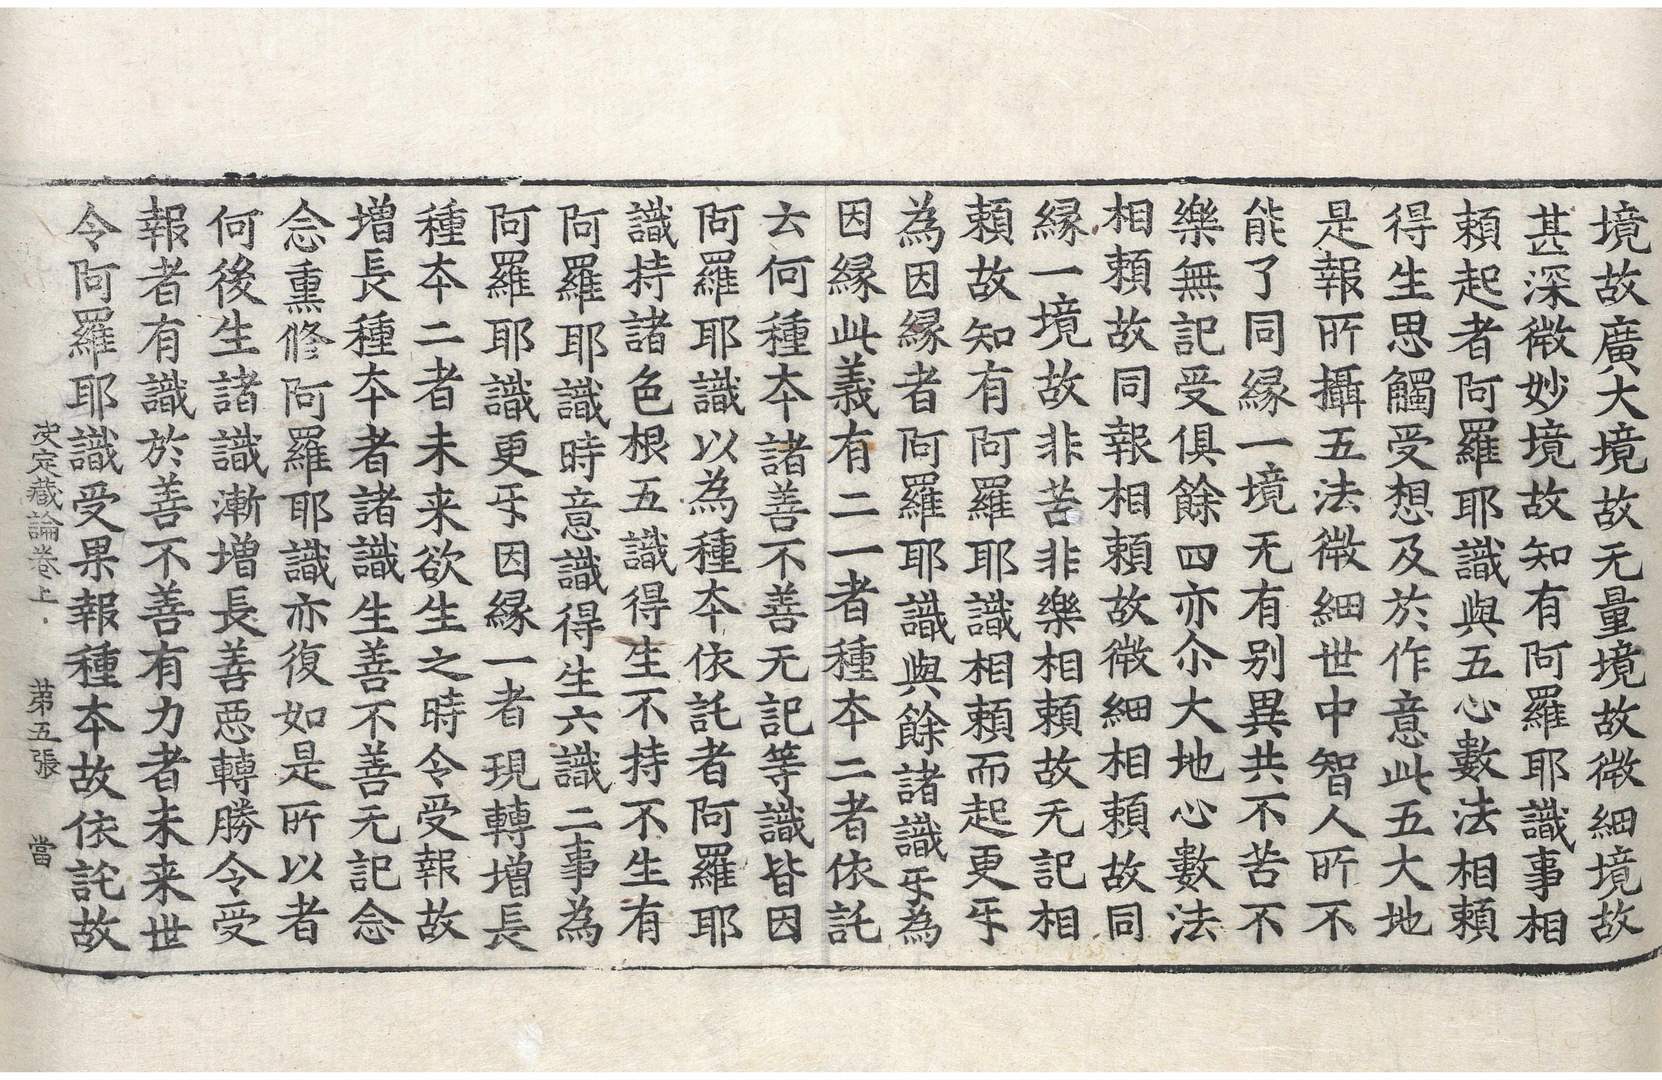 境故廣大境故无量境故微細境故
甚深微妙境故知有阿羅耶識事相
頼起者阿羅耶識與五心數法相頼
得生思觸受想及於作意此五大地
是報所攝五法微細世中智人所不
能了同縁一境无有别異共不苦不
樂無記受俱餘四亦尒大地心數法
相頼故同報相頼故微細相頼故同
縁一境故非苦非樂相頼故无記相
頼故知有阿羅耶識相頼而起更㸦
為因縁者阿羅耶識與餘諸識㸦為
因縁此義有二一者種夲二者依託
去何種夲諸善不善无記等識皆因
阿羅耶識以為種夲依託者阿羅耶
識持諸色根五識得生不持不生有
阿羅耶識時意識得生六識二事為
阿羅耶識更㸦因縁一者現轉增長
種夲二者未来欲生之時令受報故
增長種夲者諸識生善不善无記念
念熏修阿羅耶識亦復如是所以者
何後生諸識漸增長善惡轉勝令受
報者有識於善不善有力者未来世
令阿羅耶識受果報種夲故依託故
决定藏論卷上 苐五張 當